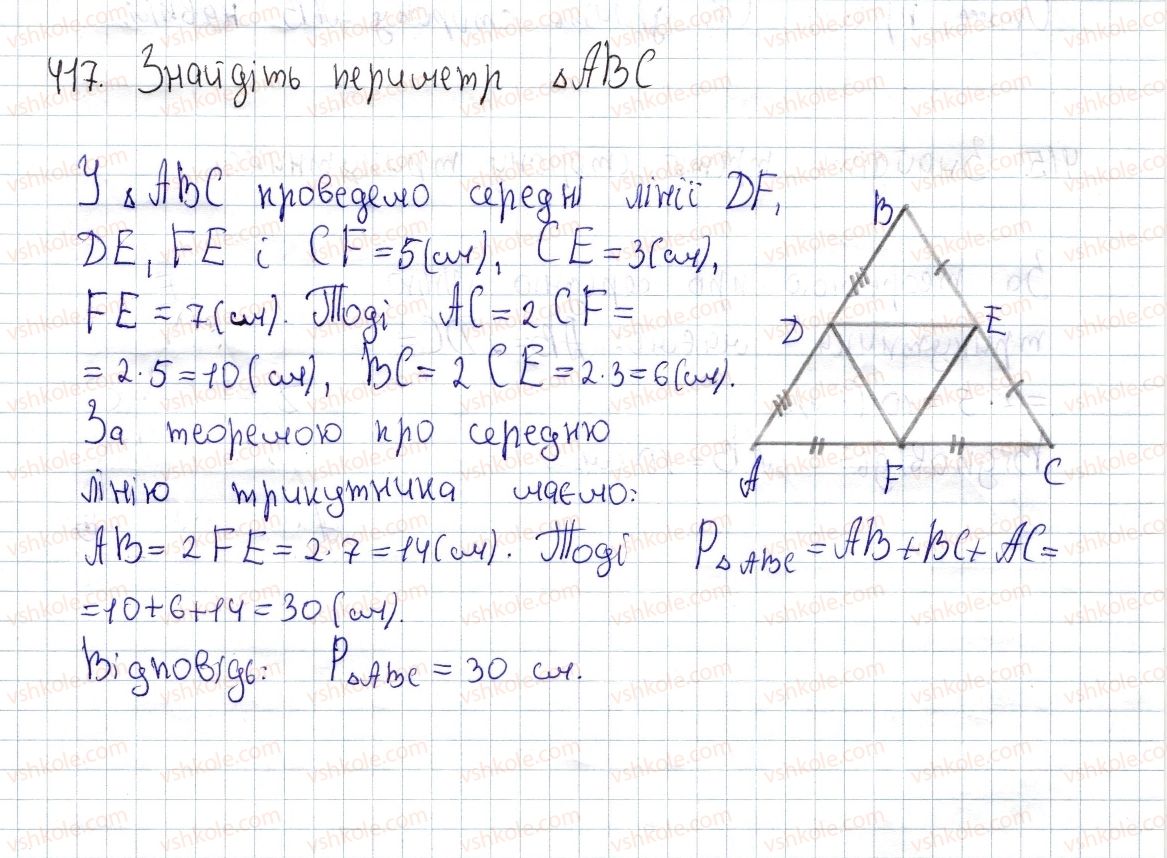 417. Знайдіть периметр △ABC
У △ABC проведемо середні лінії DF,
DE, FE і CF = 5 (см), CE = 3 (см),
FE = 7 (см). Тоді AC = 2 CF =
= 2·5 = 10 (см), BC = 2 CE = 2·3 = 6 (см).
За теоремою про середню
лінію трикутника маємо:
AB = 2 FE = 2·7 = 14 (см). Тоді P△ABC = AB + BC + AC =
= 10 + 6 + 14 = 30 (см).
Відповідь: P△ABC = 30 см.
B
D E
A F C
vshkole.com